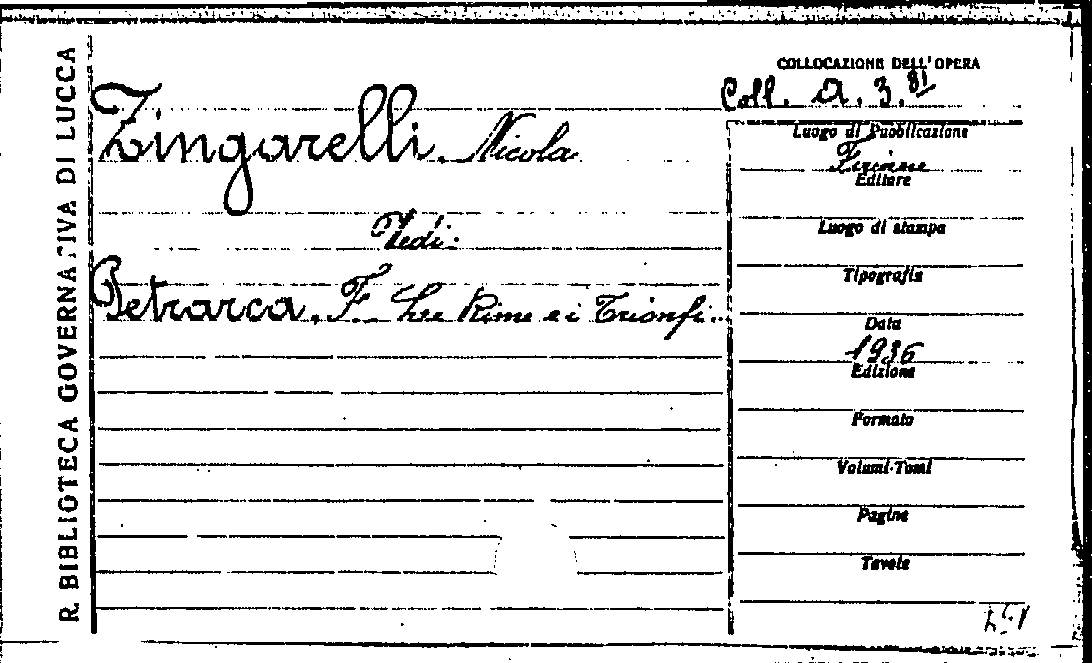 R. BIBLIOTECA GOVERNATIVA DI LUCCA
COLLOCAZIONE DELL'OPERA
Coll. A. 3. 81
Zingarelli Nicola
Vedi:
Petrarca. F. Le Rime e i Trionfi..
Luogo di Pubblicazione
Firenze
Editore
Luogo di stampa
Tipografia
Data
1936
Edizione
Formato
Volumi-Tomi
Pagine
Tavole